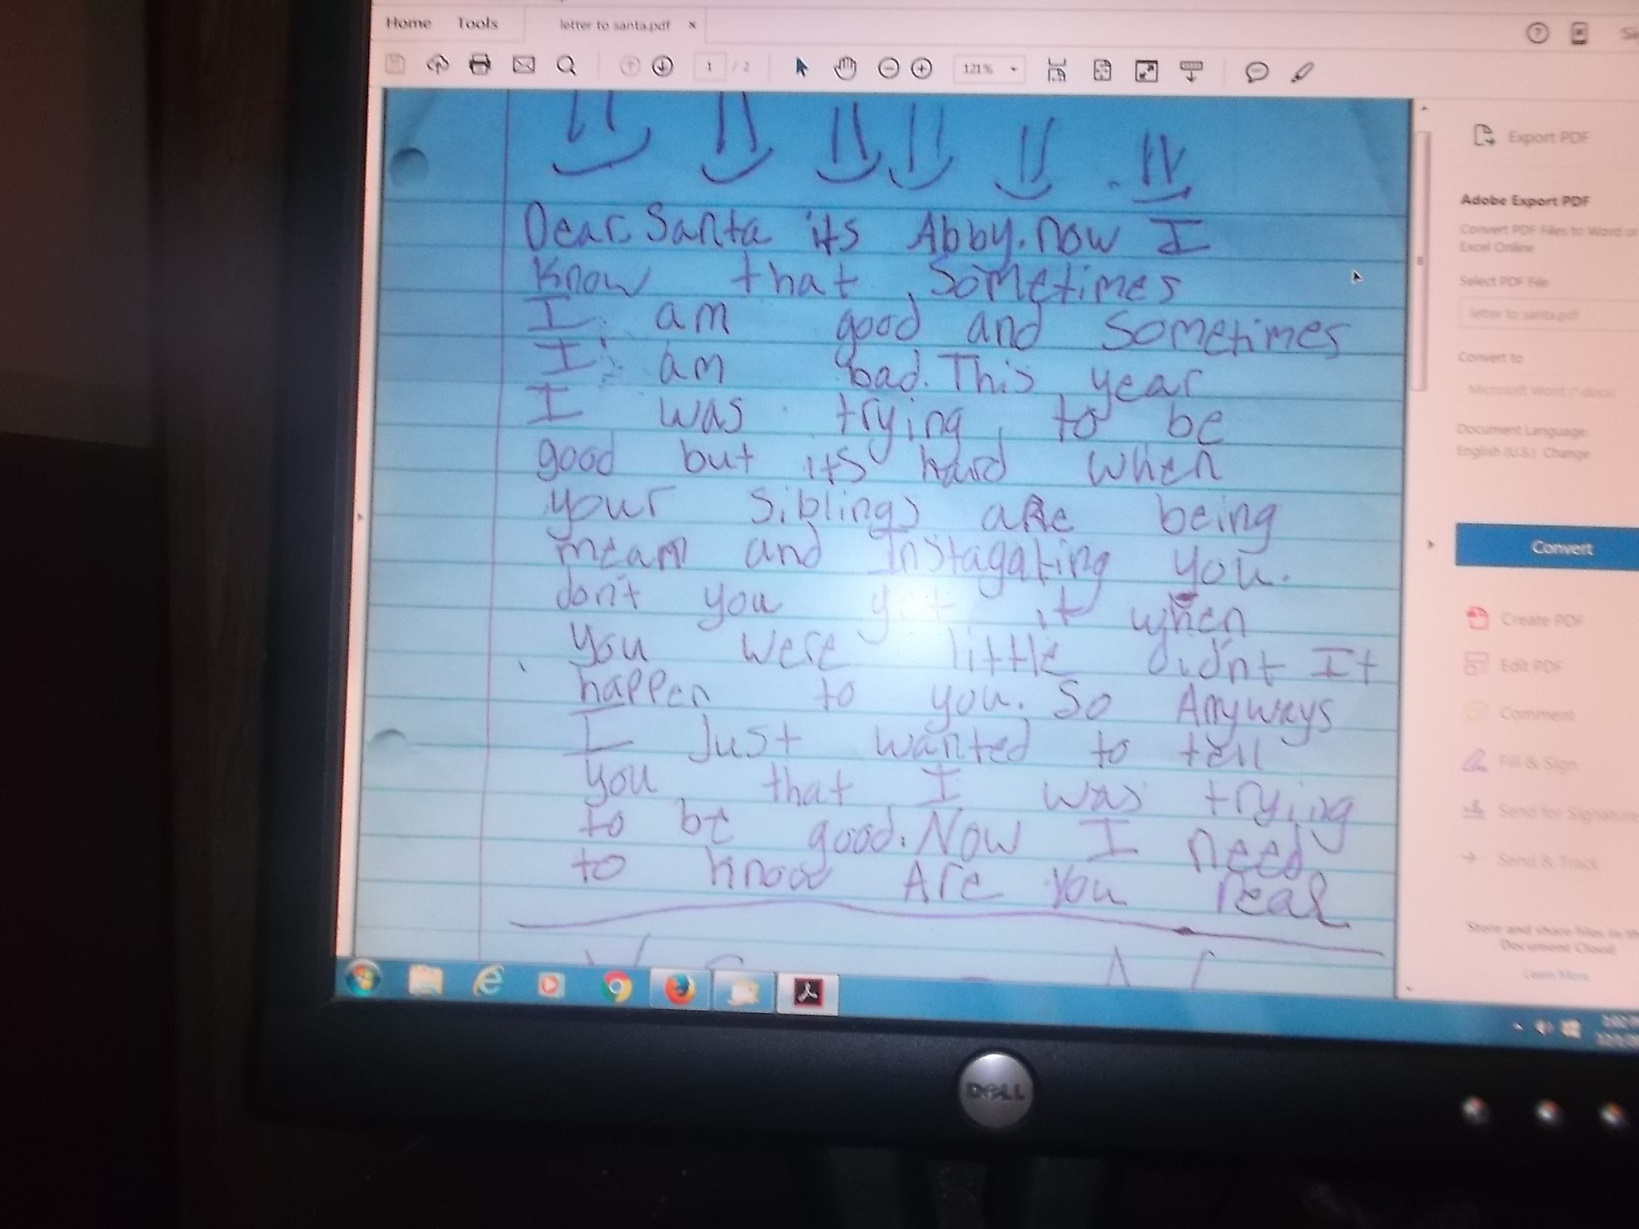 Home Tools letter to santa.pdf ×
1 / 2 121%
Dear Santa its Abby. now I
Know that sometimes
I am good and sometimes
I am bad. This year
I was trying to be
good but its hard when
your siblings are being
mean and Instagating you.
don't you get it when
you were little didn't It
happen to you. So Anyways
I Just wanted to tell
you that I was trying
to be good. Now I need
to know Are You real
Export PDF
Adobe Export PDF
Convert PDF Files to Word or
Excel Online
Select PDF File
letter to santa.pdf
Convert to
Microsoft Word (*.docx)
Document Language:
English (U.S.) Change
Convert
Create PDF
Edit PDF
Comment
Fill & Sign
Send for Signature
Send & Track
Store and share files in the
Document Cloud
Learn More
DELL